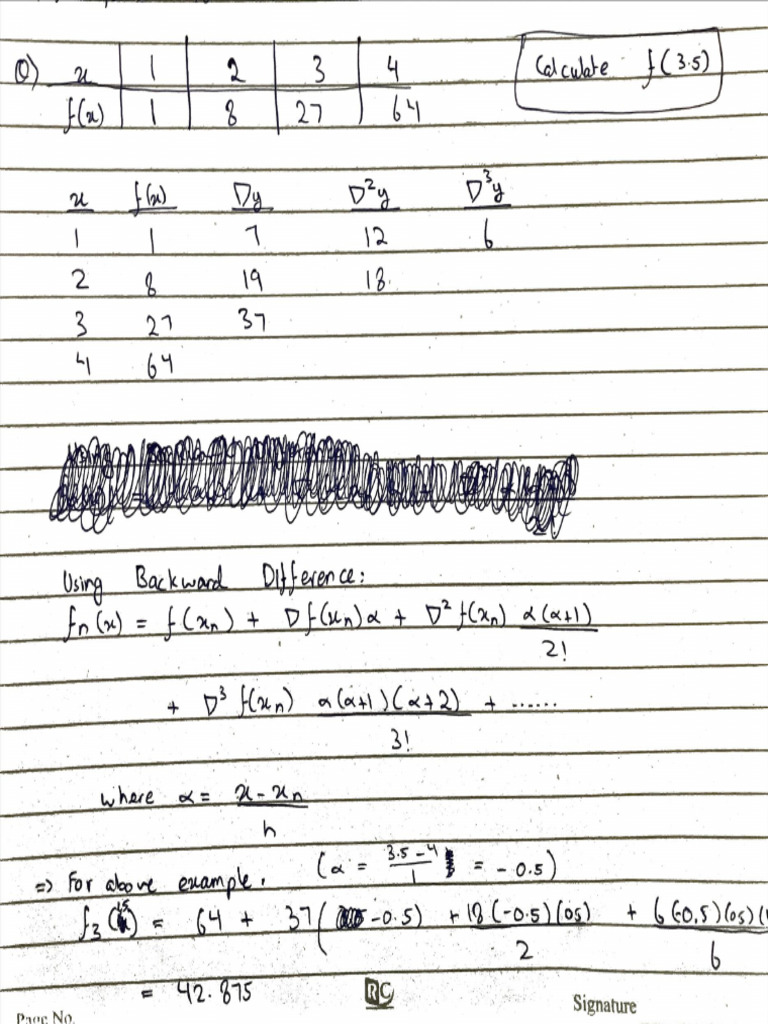 Q) x 1 2 3 4
f(x) 1 8 27 64
Calculate f(3.5)
x f(x) ∇y ∇²y ∇³y
1 1 7 12 6
2 8 19 18
3 27 37
4 64
Using Backward Difference:
fn(x) = f(xn) + ∇f(xn)α + ∇² f(xn) α(α+1)
2!
+ ∇³ f(xn) α(α+1)(α+2) + ......
3!
where α = x - xn
h
=> For above example, (α = 3.5-4 / 1 = -0.5)
f3( ) = 64 + 37(-0.5) + 18(-0.5)(05) + 6(-0.5)(05)(
2 6
= 42.875
RC
Signature
Page No.